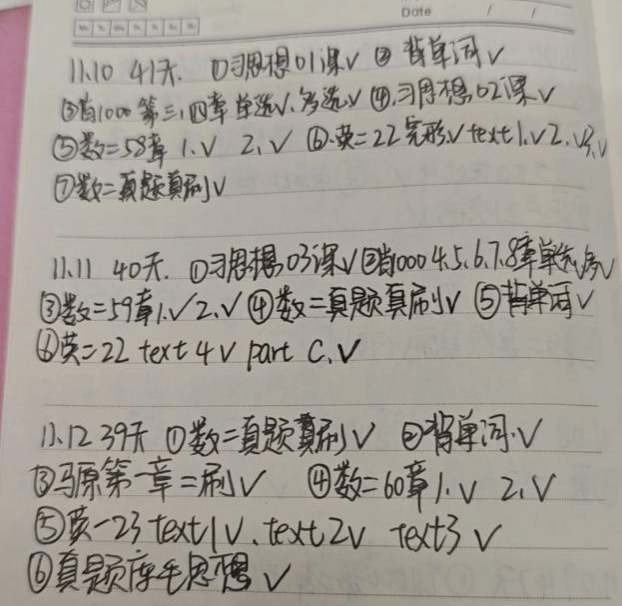 Date / /
11.10 41天. ①习思想01课√ ② 背单词√
③肖1000 第三,四章 单选√、多选√ ④.习思想02课√
⑤数二58章 1.√ 2.√ ⑥.英二22完形√ text1.√2.√3.√
⑦数二真题真刷√
11.11 40天. ①习思想03课√②肖1000 4.5.6.7.8章单选,多√
③数二59章1.√2.√④数二真题真刷√ ⑤背单词√
⑥英二22 text 4√ part C.√
11.12 39天 ①数二真题真刷√ ②背单词.√
③马原第一章二刷√ ④数二60章1.√ 2.√
⑤英一23 text1√、text2√ text3 √
⑥真题库毛思想 √